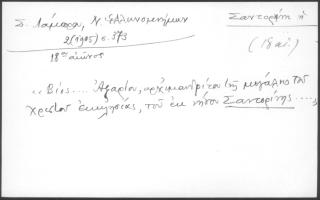 Σ. Λάμπρου, Ν. Ἑλληνομνήμων
2 (1905) σ. 373
18ος αἰῶνος
Σαντορήνη ἡ
(18 αἰ.)
«Βίος.... Ἀζαρίου, ἀρχιμανδρίτου τῆς μεγάλης τοῦ
Χριστοῦ ἐκκλησίας, τοῦ ἐκ νήσου Σαντορίνης....,